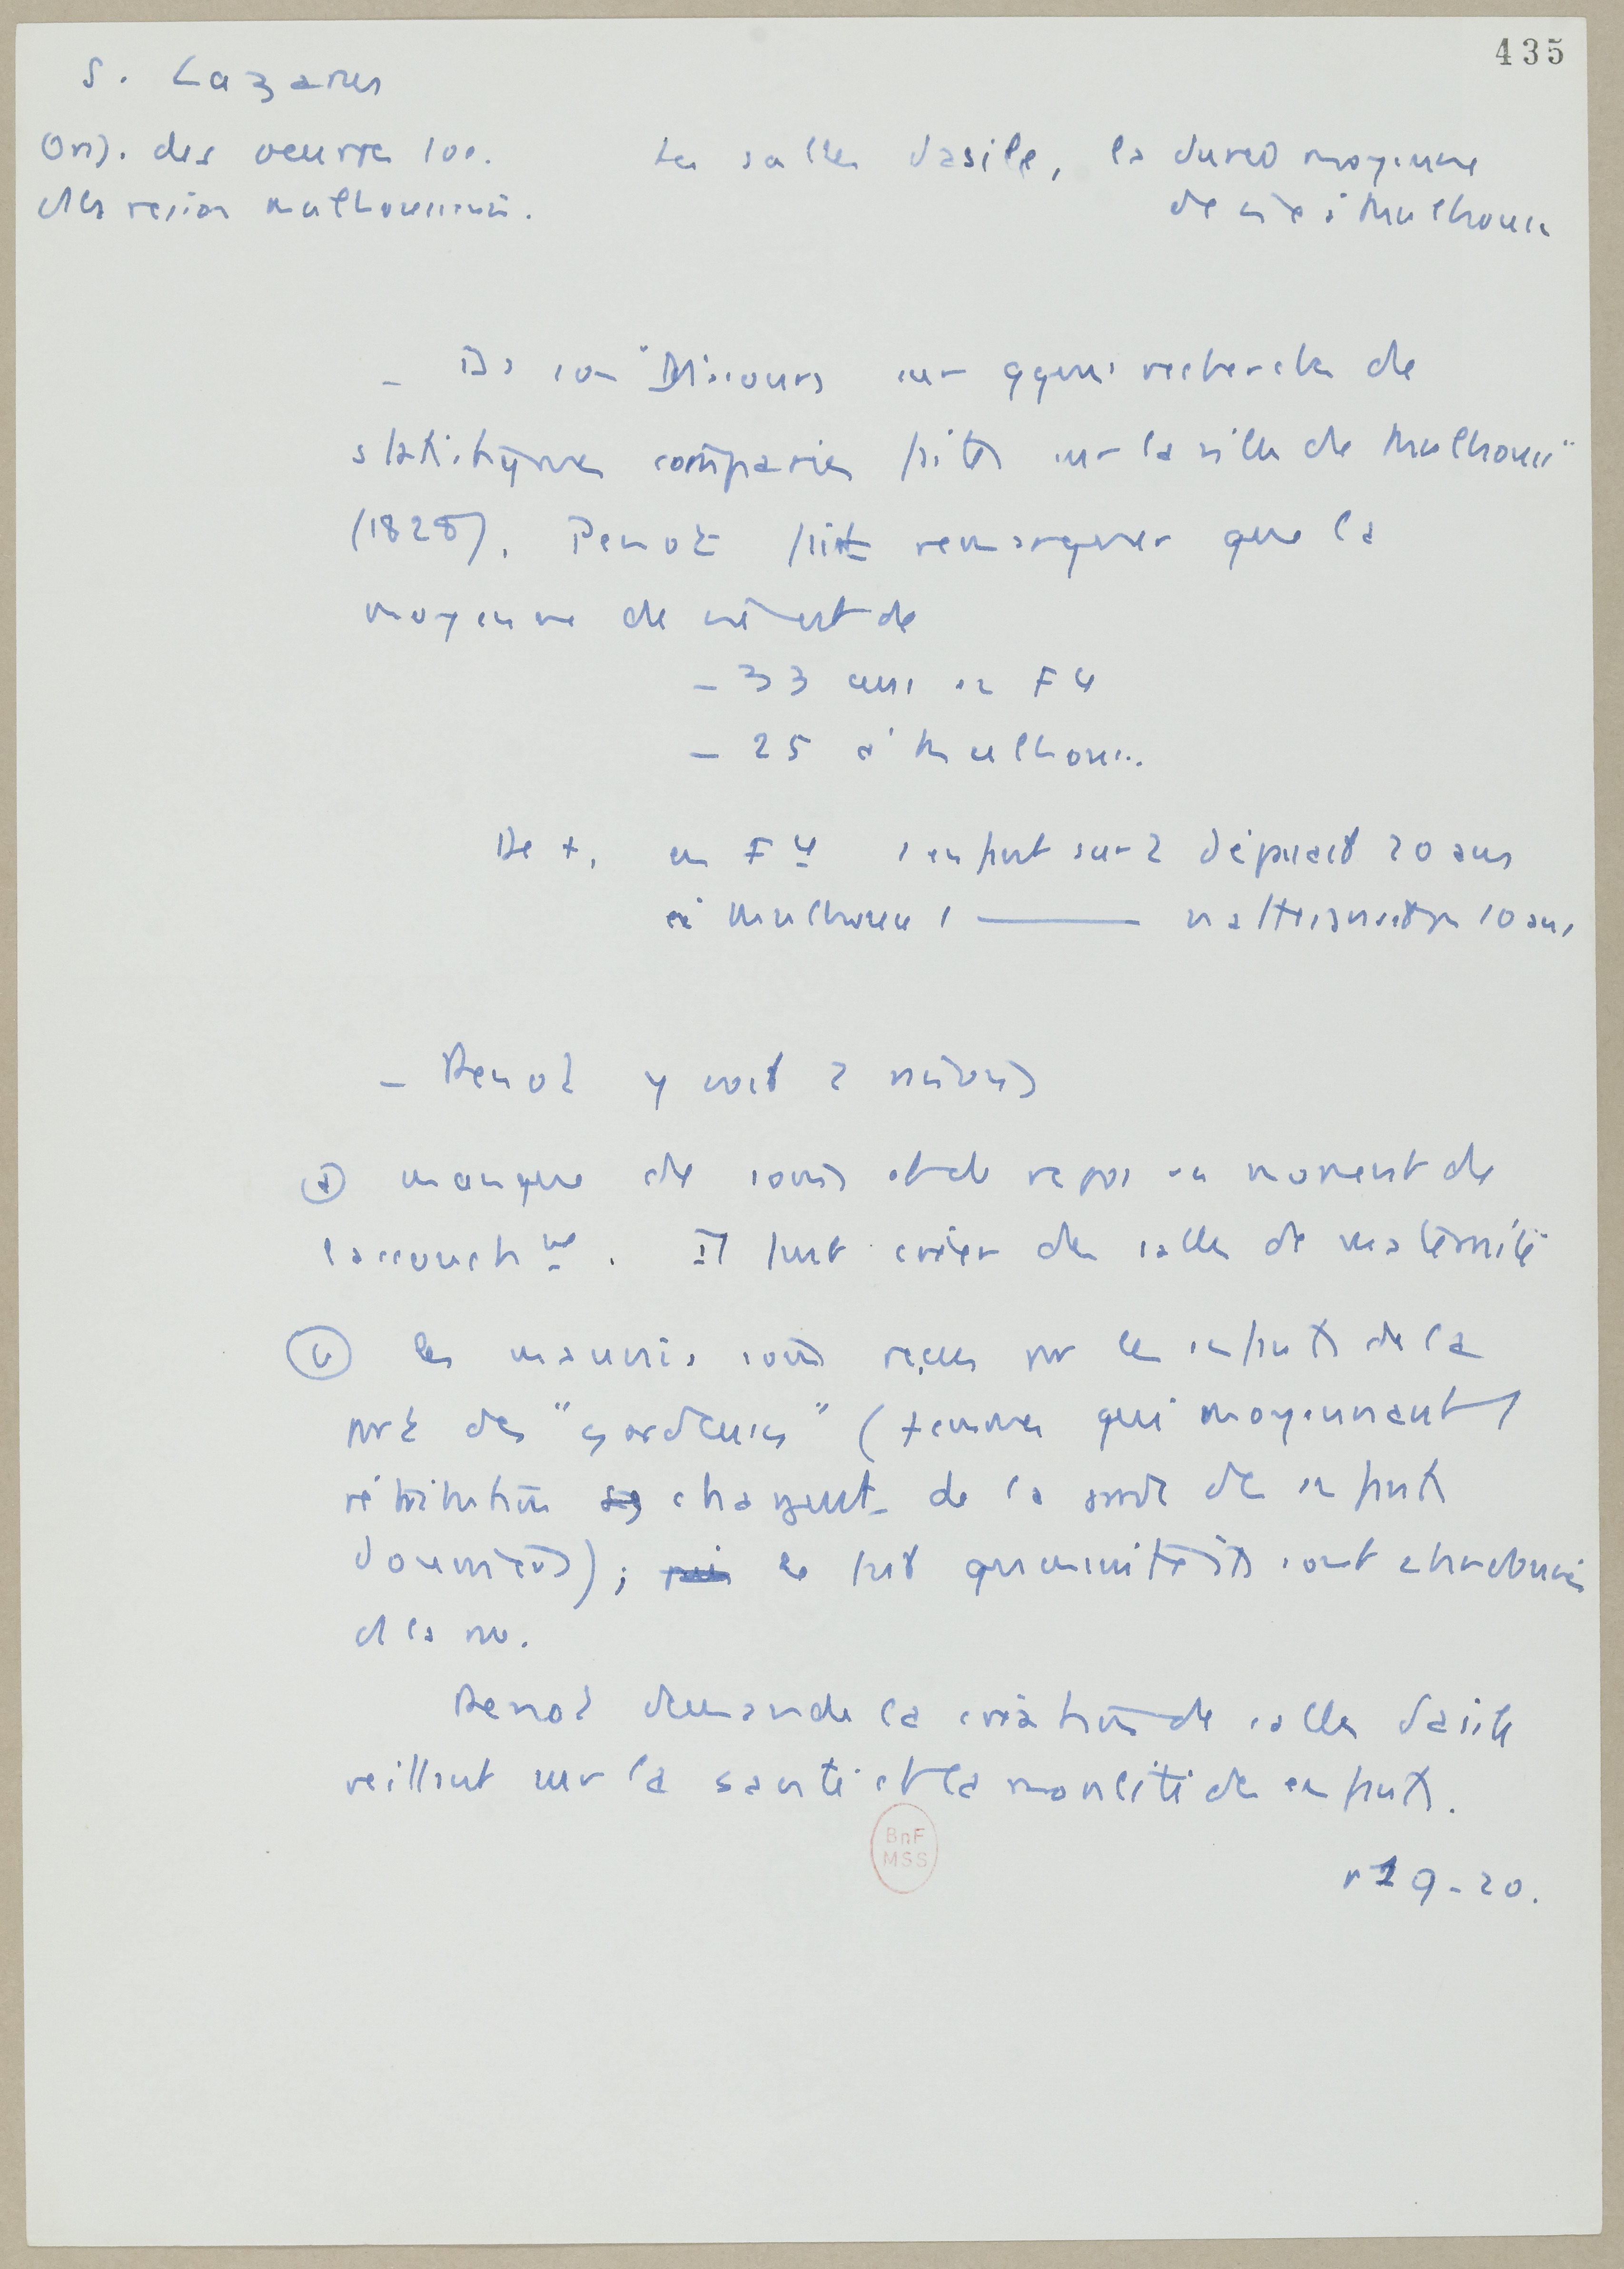 435
S. Lazarus
Orig. des oeuvres soc.
de la région mulhousienne.
Les salles d'asile, la durée moyenne
de vie à Mulhouse
– Ds son "Discours sur qques recherches de
statistiques comparées faites sur la ville de Mulhouse"
(1828), Penot fait remarquer que la
moyenne de vie est de
– 33 ans en Fce
– 25 à Mulhouse.
De +, en Fce 1 enfant sur 2 dépassait 20 ans
à Mulhouse 1 ——— n'atteignait pas 10 ans,
– Penot y voit 2 raisons
a manque de soins et de repos au moment de
l'accouchmt. Il faut créer des salles de maternité
b les mauvais soins reçus par les enfants de la
part des "gardeuses" (femmes qui moyennant
rétribution se chargent de la garde des enfants
d'ouvriers) ; le fait qu'ensuite ils sont
ds la rue.
Penot demande la création de salles d'asile
veillant sur la santé et la moralité des enfants.
BnF
MSS
p 19-20.